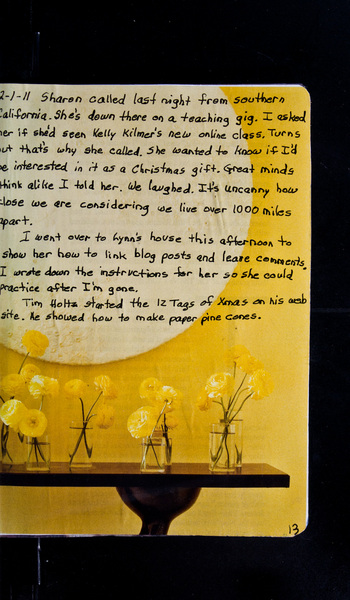 2-1-11 Sharon called last night from southern
California. She's down there on a teaching gig. I asked
her if she'd seen Kelly Kilmer's new online class. Turns
out that's why she called. She wanted to know if I'd
be interested in it as a Christmas gift. Great minds
think alike I told her. We laughed. It's uncanny how
close we are considering we live over 1000 miles
apart.
I went over to Lynn's house this afternoon to
show her how to link blog posts and leave comments.
I wrote down the instructions for her so she could
practice after I'm gone.
Tim Holtz started the 12 Tags of Xmas on his web
site. He showed how to make paper pine cones.
13